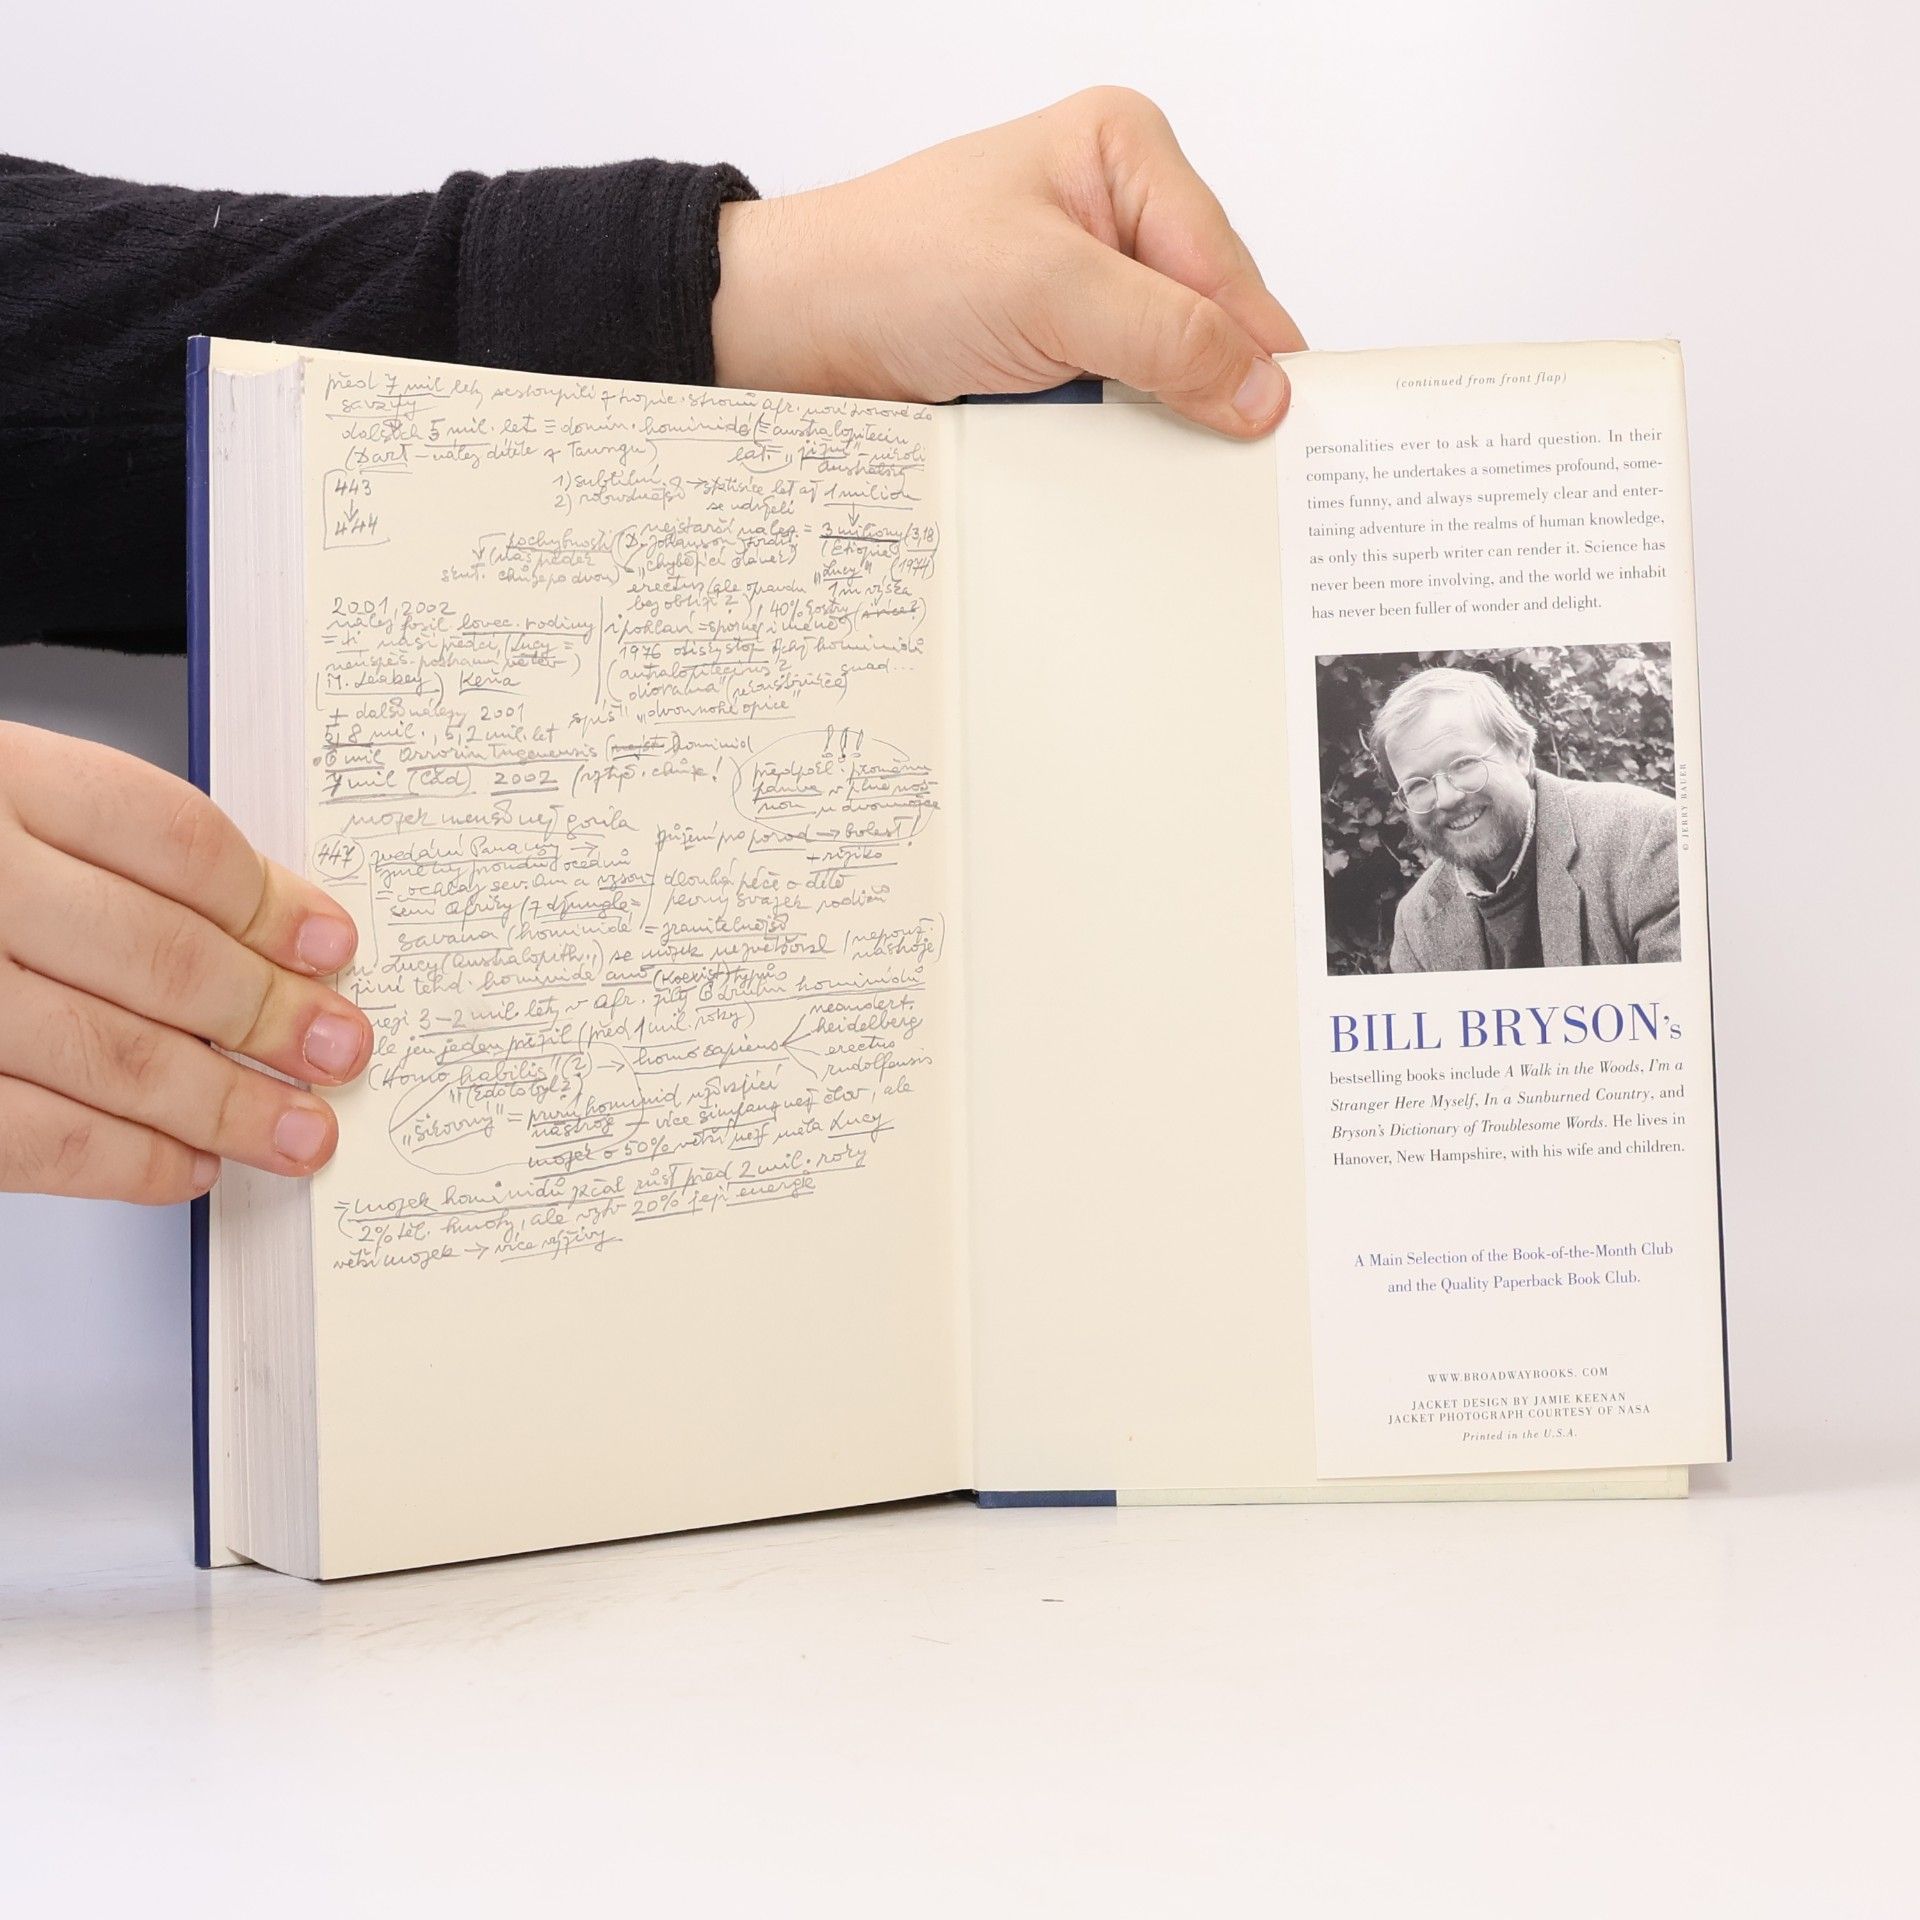 před 7 mil. lety sestoupili z tropic. stromů afr. noví tvorové do
savany
dalších 5 mil. let = domin. hominidé (= australopitecin
(Dart - nález dítěte z Taungu) lat. = "jižní" - nikoli
443
444
1) subtilní
2) robustnější → statisíce let až 1 milion
se udrželi
pochybnosti (D. Johanson tvrdí: nejstarší nález = 3 miliony (3,18
(náš předek "chybějící článek") (Etiopie)
chůze po dvou) "Lucy" (1974)
erectus (ale opravdu 1m výška
bez obtíží?), 40% kostry
i pohlaví = sporné
2001, 2002
nález fosil. lovec. rodiny
= ti naši předci (Lucy =
neúspěš. postranní větev)
(M. Leakey) Keňa
1976 otisky stop
(australopitecinus? snad...
"diorama"
+ další nálezy 2001 spíš "dvounohé opice"
5,8 mil., 5,2 mil. let
6 mil. Orrorin Tugenensis hominid
7 mil (Čad) 2002 (vzpř. chůze!
předpokl. proměnu
pánve v plně
u dvounožce
mozek menší než gorila
447
zvedání Panamy →
změny proudů oceánů
= ochlaz. sev. Am a
sení Afriky (z džungle =
savana (hominidé = zranitelnější
zúžení pro porod → bolest!
+ riziko
dlouhá péče o dítě
pevný svazek rodičů
u Lucy (Australopith.) se mozek nezvětšoval (nepouž.
nástroje)
jiní tehd. hominidé ano (koexist. typů
mezi 3-2 mil. lety v Afr. žily 6 druhů hominidů
ale jen jeden přežil (před 1 mil. roky)
"Homo habilis" (?) → homo sapiens
neandert.
heidelberg
erectus
rudolfensis
(kdo to byl?)
"šikovný" = první hominid užívající
nástroje - více šimpanz než člov., ale
mozek o 50% větší než měla Lucy
= mozek hominidů začal růst před 2 mil. roky
2% těl. hmoty, ale 20% její energie
větší mozek → více výživy
(continued from front flap)
personalities ever to ask a hard question. In their
company, he undertakes a sometimes profound, some-
times funny, and always supremely clear and enter-
taining adventure in the realms of human knowledge,
as only this superb writer can render it. Science has
never been more involving, and the world we inhabit
has never been fuller of wonder and delight.
© JERRY BAUER
BILL BRYSON's
bestselling books include A Walk in the Woods, I'm a
Stranger Here Myself, In a Sunburned Country, and
Bryson's Dictionary of Troublesome Words. He lives in
Hanover, New Hampshire, with his wife and children.
A Main Selection of the Book-of-the-Month Club
and the Quality Paperback Book Club.
WWW.BROADWAYBOOKS.COM
JACKET DESIGN BY JAMIE KEENAN
JACKET PHOTOGRAPH COURTESY OF NASA
Printed in the U.S.A.